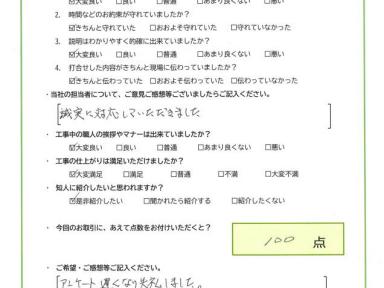 ☑大変良い □良い □普通 □あまり良くない □悪い
2. 時間などのお約束が守れていましたか？
☑きちんと守れていた □おおよそ守れていた □守れていなかった
3. 説明はわかりやすく的確に出来ていましたか？
☑大変良い □良い □普通 □あまり良くない □悪い
4. 打合せした内容がきちんと現場に伝わっていましたか？
☑きちんと伝わっていた □おおよそ伝わっていた □伝わっていなかった
・当社の担当者について、ご意見ご感想等ございましたらご記入ください。
誠実に対応していただきました
・ 工事中の職人の挨拶やマナーは出来ていましたか？
☑大変良い □良い □普通 □あまり良くない □悪い
・ 工事の仕上がりは満足いただけましたか？
☑大変満足 □満足 □普通 □不満 □大変不満
・ 知人に紹介したいと思われますか？
☑是非紹介したい □聞かれたら紹介する □紹介したくない
・ 今回のお取引に、あえて点数をお付けいただくと？
100 点
・ ご希望・ご感想等ご記入ください。
アンケート遅くなり失礼しました。